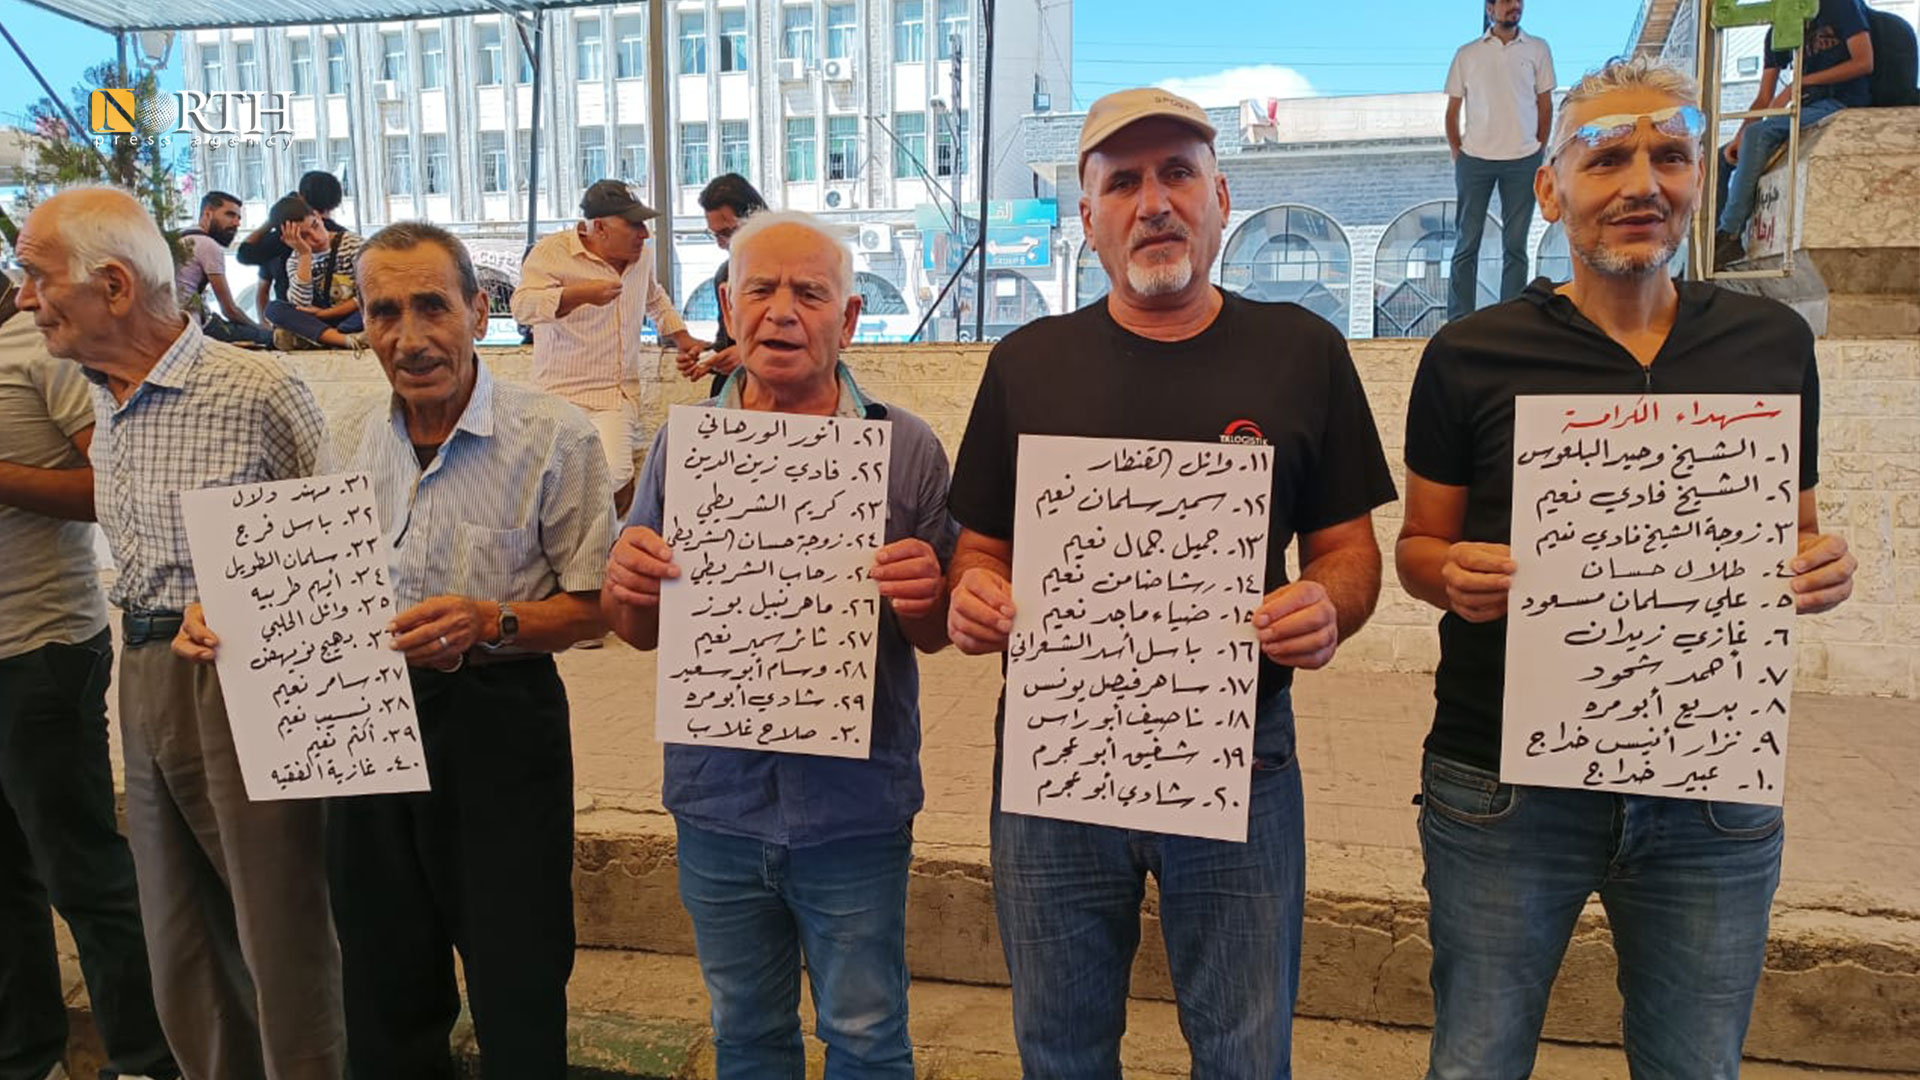 NORTH
press agency
شهداء الكرامة
١- الشيخ وحيد البلعوس
٢- الشيخ فادي نعيم
٣- زوجة الشيخ فادي نعيم
٤- طلال حسان
٥- علي سلمان مسعود
٦- غازي زيدان
٧- أحمد شحود
٨- بديع أبو مره
٩- نزار أنيس خداج
١٠- عبير خداج
١١- وائل القنطار
١٢- سمير سلمان نعيم
١٣- جميل جمال نعيم
١٤- رشا ضامن نعيم
١٥- ضياء ماجد نعيم
١٦- باسل أسد الشعراني
١٧- ساهر فيصل يونس
١٨- ناصيف أبوراس
١٩- شفيق أبو عجرم
٢٠- شادي أبو عجرم
TKLOGISTIK
SPORT
٢١- أنور الورهاني
٢٢- فادي زين الدين
٢٣- كريم الشريطي
٢٤- زوجة حسان الشريطي
٢٥- رحاب الشريطي
٢٦- ماهر نبيل بوز
٢٧- ثائر سمير نعيم
٢٨- وسام أبو سعيد
٢٩- شادي أبو مره
٣٠- صلاح غلاب
٣١- مهند دلال
٣٢- باسل فرج
٣٣- سلمان الطويل
٣٤- أيهم طربيه
٣٥- وائل الحلبي
٣٦- بهيج نويهض
٣٧- سامر نعيم
٣٨- نسيب نعيم
٣٩- أكثم نعيم
٤٠- غازية الفقيه